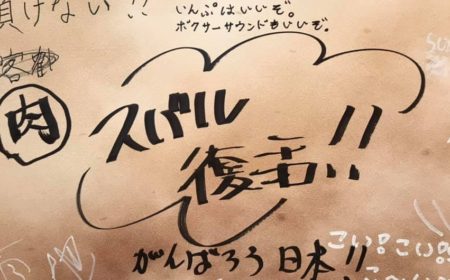 負けない!!
いんぷはいいぞ。
ボクサーサウンドもいいぞ。
肉
スバル
復活!!
がんばろう 日本!!
こい。こい。